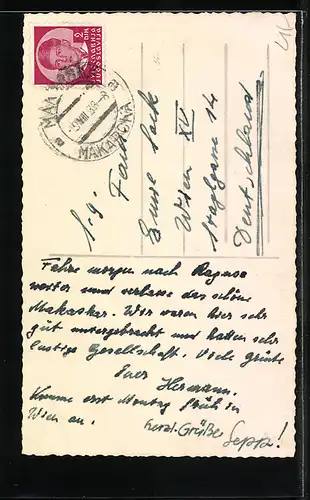 2 DIN
ЈУГОСЛАВИЈА
JUGOSLAVIJA
МАКАРСКА
MAKARSKA
S. g.
Familie
Emil
Wien XV
14
Deutschland
Fahre morgen nach Ragusa
weiter und verlasse das schöne
Makaskar. Wir waren hier sehr
gut untergebracht und hatten sehr
lustige Gesellschaft. Viele Grüße
Euer Hermann.
Komme erst Montag früh in
Wien an.
herzl. Grüße Sepp!